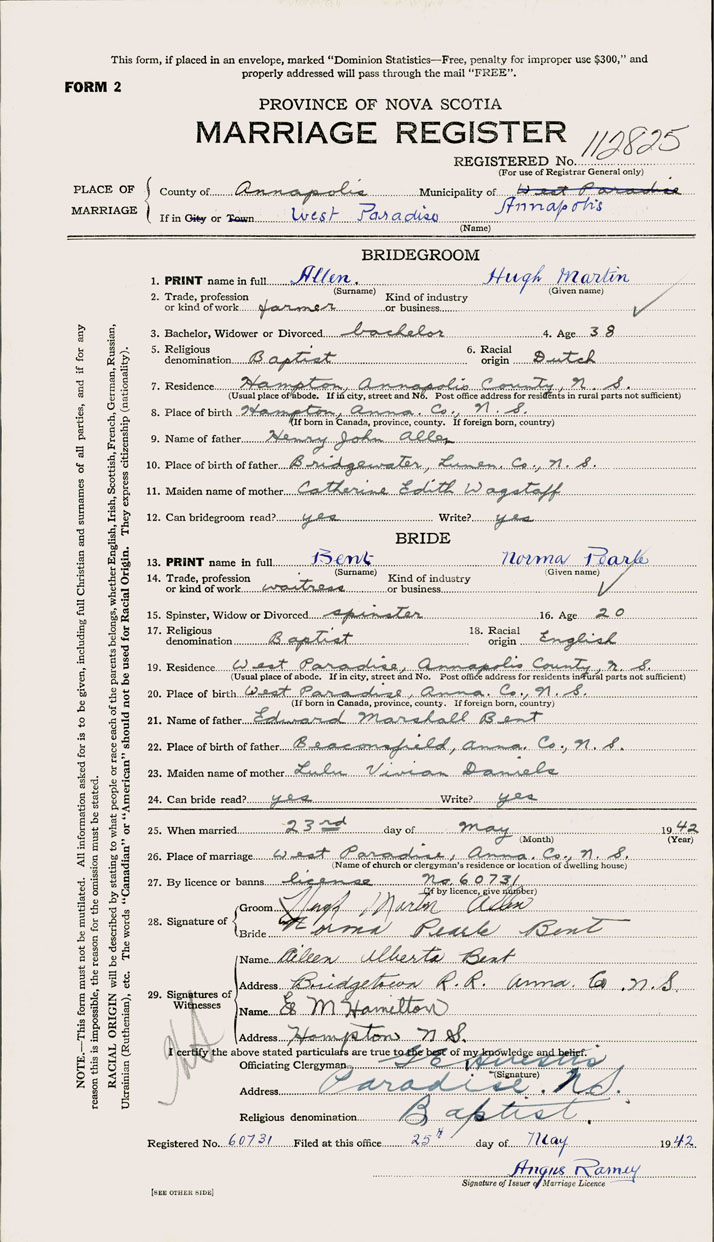 This form, if placed in an envelope, marked "Dominion Statistics—Free, penalty for improper use $300," and
properly addressed will pass through the mail "FREE".
FORM 2
PROVINCE OF NOVA SCOTIA
MARRIAGE REGISTER
REGISTERED No. 112825
(For use of Registrar General only)
PLACE OF MARRIAGE
County of Annapolis Municipality of West Paradise
Annapolis
If in City or Town West Paradise
(Name)
BRIDEGROOM
1. PRINT name in full Allen. Hugh Martin
(Surname) (Given name)
2. Trade, profession or kind of work farmer Kind of industry or business
3. Bachelor, Widower or Divorced bachelor 4. Age 38
5. Religious denomination Baptist 6. Racial origin Dutch
7. Residence Hampton, Annapolis County, N. S.
(Usual place of abode. If in city, street and No. Post office address for residents in rural parts not sufficient)
8. Place of birth Hampton, Anna. Co., N. S.
(If born in Canada, province, county. If foreign born, country)
9. Name of father Henry John Allen
10. Place of birth of father Bridgewater, Lunen. Co., N. S.
11. Maiden name of mother Catherine Edith Wagstaff
12. Can bridegroom read? yes Write? yes
BRIDE
13. PRINT name in full Bent Norma Pearle
(Surname) (Given name)
14. Trade, profession or kind of work waitress Kind of industry or business
15. Spinster, Widow or Divorced spinster 16. Age 20
17. Religious denomination Baptist 18. Racial origin English
19. Residence West Paradise, Annapolis County, N. S.
(Usual place of abode. If in city, street and No. Post office address for residents in rural parts not sufficient)
20. Place of birth West Paradise, Anna. Co., N. S.
(If born in Canada, province, county. If foreign born, country)
21. Name of father Edward Marshall Bent
22. Place of birth of father Beaconsfield, Anna. Co., N. S.
23. Maiden name of mother Lulu Vivian Daniels
24. Can bride read? yes Write? yes
25. When married 23rd day of May 1942
(Month) (Year)
26. Place of marriage West Paradise, Anna. Co., N. S.
(Name of church or clergyman's residence or location of dwelling house)
27. By licence or banns license No. 60731
(If by licence, give number)
28. Signature of
Groom Hugh Martin Allen
Bride Norma Pearle Bent
29. Signatures of Witnesses
Name Aileen Alberta Bent
Address Bridgetown R.R. Anna. Co N.S.
Name E M Hamilton
Address Hampton N S.
I certify the above stated particulars are true to the best of my knowledge and belief.
Officiating Clergyman
(Signature)
Address Paradise. N.S.
Religious denomination Baptist.
Registered No. 60731 Filed at this office 25th day of May 1942
Angus Ramey
Signature of Issuer of Marriage Licence
[SEE OTHER SIDE]
NOTE.—This form must not be mutilated. All information asked for is to be given, including full Christian and surnames of all parties, and if for any
reason this is impossible, the reason for the omission must be stated.
RACIAL ORIGIN will be described by stating to what people or race each of the parents belongs, whether English, Irish, Scottish, French, German, Russian,
Ukrainian (Ruthenian), etc. The words "Canadian" or "American" should not be used for Racial Origin. They express citizenship (nationality).